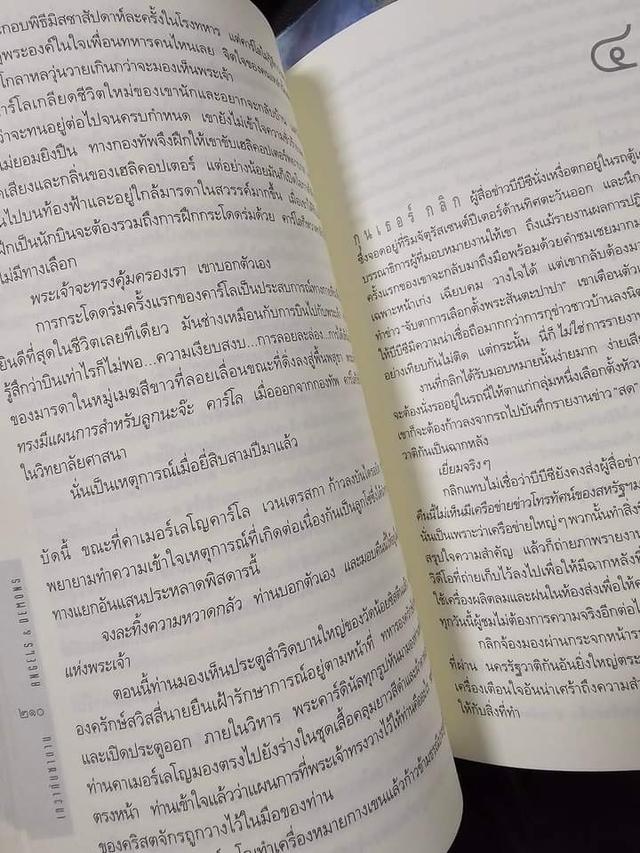 กอบพิธีมิสซาสัปดาห์ละครั้งในโรงทหาร
พระองค์ในใจเพื่อนทหารคนไหนเลย จิตใจของคน
โกลาหลวุ่นวายเกินกว่าจะมองเห็นพระเจ้า
คาร์โลเกลียดชีวิตใหม่ของเขานักและอยากจะกลับบ้าน
ว่าจะทนอยู่ต่อไปจนครบกำหนด เขายังไม่เข้าใจความ
ไม่ยอมยิงปืน ทางกองทัพจึงฝึกให้เขาขับเฮลิคอปเตอร์
เสียงและกลิ่นของเฮลิคอปเตอร์ แต่อย่างน้อยมันก็
ไปบนท้องฟ้าและอยู่ใกล้มารดาในสวรรค์มากขึ้น
ฝึกเป็นนักบินจะต้องรวมถึงการฝึกกระโดดร่มด้วย
ไม่มีทางเลือก
พระเจ้าจะทรงคุ้มครองเรา เขาบอกตัวเอง
การกระโดดร่มครั้งแรกของคาร์โลเป็นประสบการณ์ทาง
ยินดีที่สุดในชีวิตเลยทีเดียว มันช่างเหมือนกับการบินไปกับ
รู้สึกว่าบินเท่าไรก็ไม่พอ...ความเงียบสงบ...การลอยละล่อง...
ของมารดาในหมู่เมฆสีขาวที่ลอยเลื่อนขณะที่ดิ่งลงสู่พื้นพสุธา
ทรงมีแผนการสำหรับลูกนะจ๊ะ คาร์โล เมื่อออกจากกองทัพ
ในวิทยาลัยศาสนา
นั่นเป็นเหตุการณ์เมื่อยี่สิบสามปีมาแล้ว
บัดนี้ ขณะที่คาเมอร์เลโญคาร์โล เวนเตรสกา ก้าวลงบันได
พยายามทำความเข้าใจเหตุการณ์ที่เกิดต่อเนื่องกันเป็นลูกโซ่
ทางแยกอันแสนประหลาดพิสดารนี้
จงละทิ้งความหวาดกลัว ท่านบอกตัวเอง และมอบคืนนี้
แห่งพระเจ้า
ตอนนี้ท่านมองเห็นประตูสำริดบานใหญ่ของวัดน้อยซิสทีน
องครักษ์สวิสสี่นายยืนเฝ้ารักษาการณ์อยู่ตามหน้าที่
และเปิดประตูออก ภายในวิหาร พระคาร์ดินัลทุกรูปหันมา
ท่านคาเมอร์เลโญมองตรงไปยังร่างในชุดเสื้อคลุมยาวสีดำ
ตรงหน้า ท่านเข้าใจแล้วว่าแผนการที่พระเจ้าทรงวางไว้ให้ท่าน
ของคริสตจักรถูกวางไว้ในมือของท่าน
ทำเครื่องหมายกางเขนแล้วก้าวข้าม
ANGELS & DEMONS
๒๑๐
เทวากับซาตาน
๔
กุนเธอร์ กลิก ผู้สื่อข่าวบีบีซีนั่งเหงื่อตกอยู่ในรถตู้
ซึ่งจอดอยู่ที่ริมจัตุรัสเซนต์ปีเตอร์ด้านทิศตะวันออก และนึก
บรรณาธิการผู้ที่มอบหมายงานให้เขา ถึงแม้รายงานผลการ
ครั้งแรกของเขาจะกลับมาถึงมือพร้อมด้วยคำชมเชยมาก
เฉพาะหน้าเก่ง เฉียบคม วางใจได้ แต่เขากลับต้อง
ทำข่าว "จับตาการเลือกตั้งพระสันตะปาปา" เขาเตือนตัว
ให้บีบีซีมีความน่าเชื่อถือมากกว่าการกุข่าวชาวบ้านลง
อย่างเทียบกันไม่ติด แต่กระนั้น นี่ก็ไม่ใช่การรายงาน
งานที่กลิกได้รับมอบหมายนั้นง่ายมาก ง่าย
จะต้องนั่งรออยู่ในรถนี้ให้ตาแก่กลุ่มหนึ่งเลือกตั้งหัว
เขาก็จะต้องก้าวลงจากรถไปบันทึกรายงานข่าว "สด"
วาติกันเป็นฉากหลัง
เยี่ยมจริงๆ
กลิกแทบไม่เชื่อว่าบีบีซียังคงส่งผู้สื่อข่าว
คืนนี้ไม่เห็นมีเครือข่ายข่าวโทรทัศน์ของสหรัฐฯ
นั่นเป็นเพราะว่าเครือข่ายใหญ่ๆ พวกนั้นทำสิ่ง
สรุปใจความสำคัญ แล้วก็ถ่ายภาพรายงาน
วิดีโอที่ถ่ายเก็บไว้ลงไปเพื่อให้มีฉากหลัง
ใช้เครื่องผลิตลมและฝนในห้องส่งเพื่อให้
ทุกวันนี้ผู้ชมไม่ต้องการความจริงอีกต่อไป
กลิกจ้องมองผ่านกระจกหน้า
ที่ผ่าน นครรัฐวาติกันอันยิ่งใหญ่
เครื่องเตือนใจอันน่าเศร้าถึงความ
ให้กับสิ่งที่ทำ